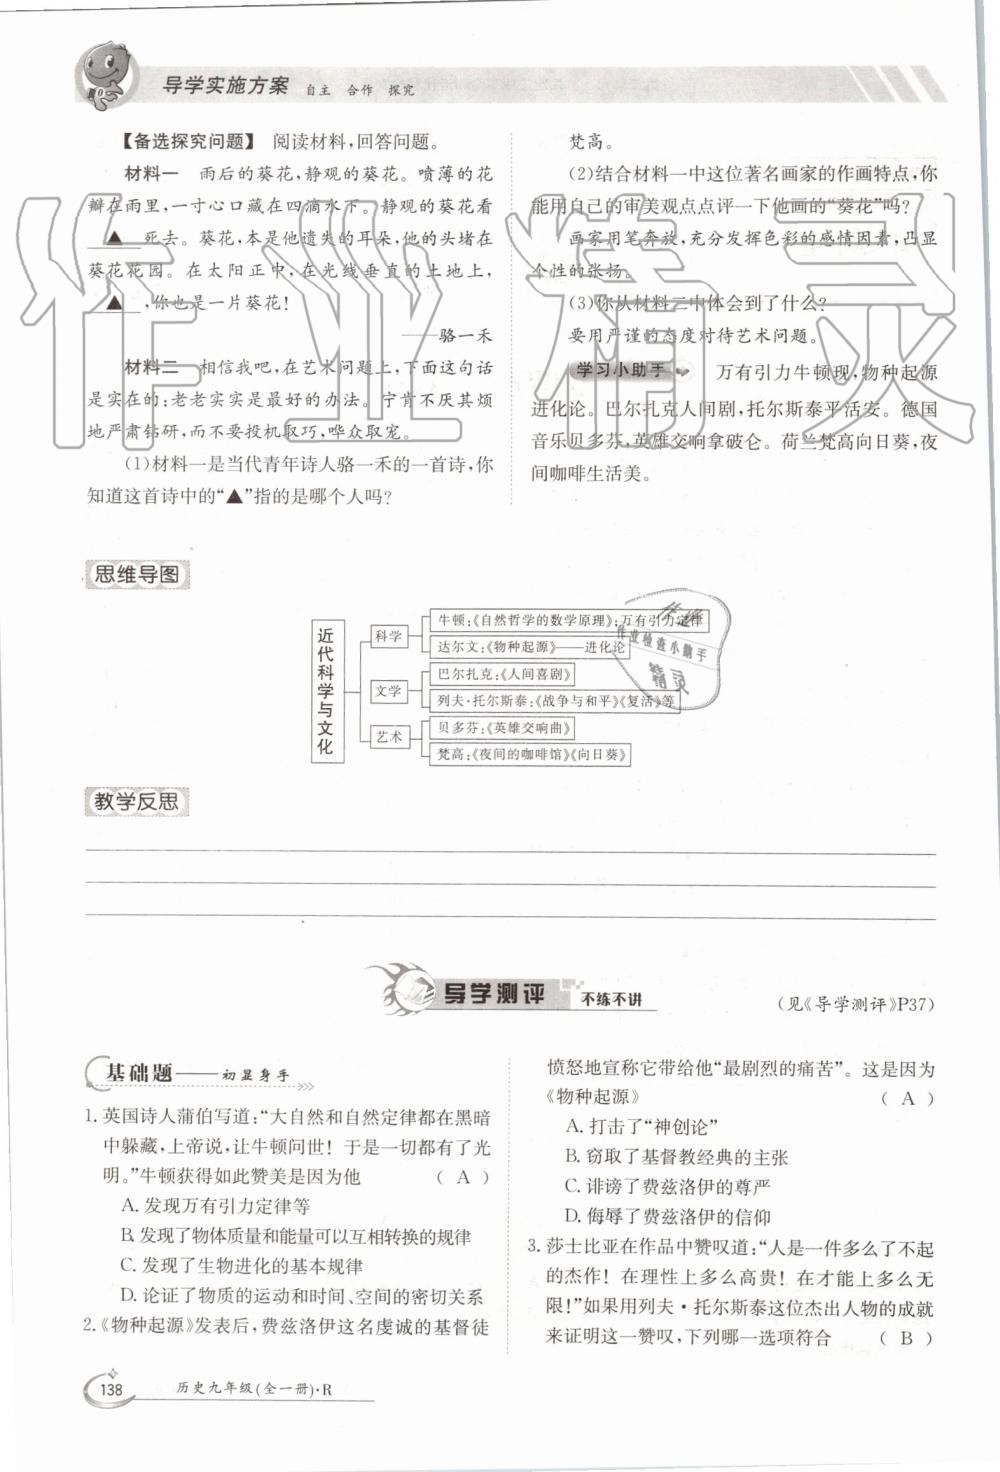 导学实施方案 自主 合作 探究
【备选探究问题】 阅读材料,回答问题。
材料一 雨后的葵花,静观的葵花。喷薄的花
瓣在雨里,一寸心口藏在四滴水下。静观的葵花看
▲ 死去。葵花,本是他遗失的耳朵,他的头堵在
葵花花园。在太阳正中,在光线垂直的土地上,
▲ ,你也是一片葵花!
——骆一禾
材料二 相信我吧,在艺术问题上,下面这句话
是实在的:老老实实是最好的办法。宁肯不厌其烦
地严肃钻研,而不要投机取巧,哗众取宠。
(1)材料一是当代青年诗人骆一禾的一首诗,你
知道这首诗中的“▲”指的是哪个人吗?
梵高。
(2)结合材料一中这位著名画家的作画特点,你
能用自己的审美观点点评一下他画的“葵花”吗?
画家用笔奔放,充分发挥色彩的感情因素,凸显
个性的张扬。
(3)你从材料二中体会到了什么?
要用严谨的态度对待艺术问题。
学习小助手 万有引力牛顿现,物种起源
进化论。巴尔扎克人间剧,托尔斯泰平活安。德国
音乐贝多芬,英雄交响拿破仑。荷兰梵高向日葵,夜
间咖啡生活美。
思维导图
近代科学与文化
科学
牛顿:《自然哲学的数学原理》;万有引力定律
达尔文:《物种起源》——进化论
文学
巴尔扎克:《人间喜剧》
列夫·托尔斯泰:《战争与和平》《复活》等
艺术
贝多芬:《英雄交响曲》
梵高:《夜间的咖啡馆》《向日葵》
教学反思
导学测评 不练不讲
(见《导学测评》P37)
基础题——初显身手
1. 英国诗人蒲伯写道:“大自然和自然定律都在黑暗
中躲藏,上帝说,让牛顿问世!于是一切都有了光
明。”牛顿获得如此赞美是因为他 ( A )
A. 发现万有引力定律等
B. 发现了物体质量和能量可以互相转换的规律
C. 发现了生物进化的基本规律
D. 论证了物质的运动和时间、空间的密切关系
2.《物种起源》发表后,费兹洛伊这名虔诚的基督徒
愤怒地宣称它带给他“最剧烈的痛苦”。这是因为
《物种起源》 ( A )
A. 打击了“神创论”
B. 窃取了基督教经典的主张
C. 诽谤了费兹洛伊的尊严
D. 侮辱了费兹洛伊的信仰
3. 莎士比亚在作品中赞叹道:“人是一件多么了不起
的杰作!在理性上多么高贵!在才能上多么无
限!”如果用列夫·托尔斯泰这位杰出人物的成就
来证明这一赞叹,下列哪一选项符合 ( B )
138 历史九年级(全一册)·R
作业精灵
作业
作业检查小助手
精灵